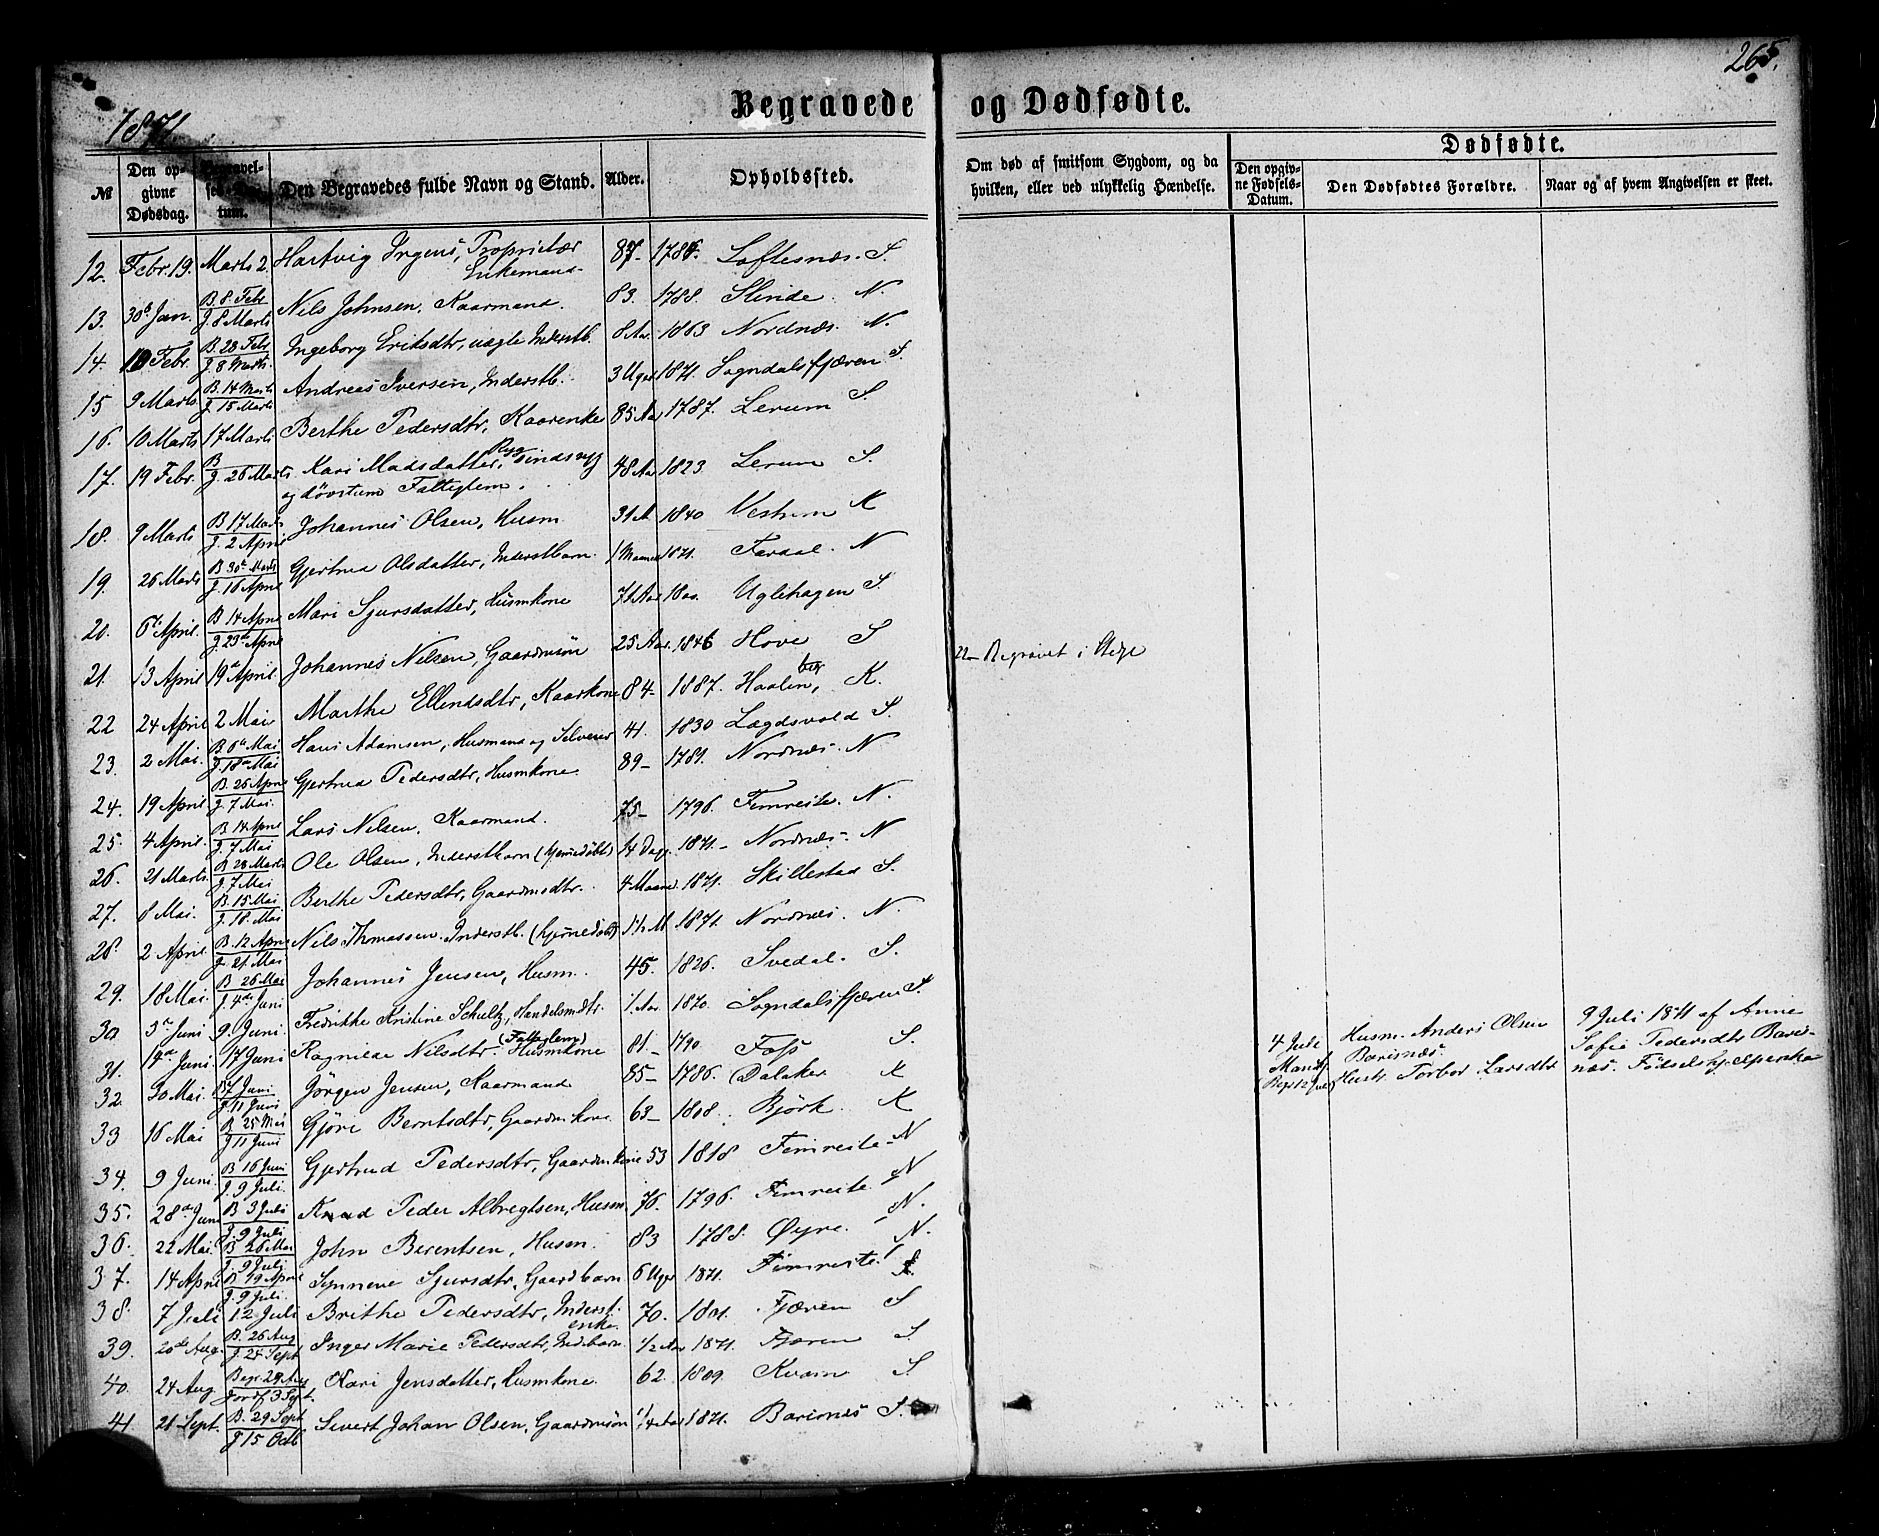 265.
1871.
Begravede og Dødfødte.
Dødfødte.
№ Den opgivne Dødsdag. Begravelses-Datum. Den Begravedes fulde Navn og Stand. Alder. Opholdssted. Om død af smitsom Sygdom, og da hvilken, eller ved ulykkelig Hændelse. Den opgivne Fødsels-Datum. Den Dødfødtes Forældre. Naar og af hvem Angivelsen er skeet.
12. Febr. 19. Marts 2. Hartvig Ingens, Proprietær Enkemand 87- Loftesnæs. S.
13. 30te Jan. B. 8 Febr J. 8 Marts Nils Johnsen, Kaarmand. 83. 1788. Slinde. N.
14. Febr. B. 23 Febr J. 8 Marts Ingeborg Eriksdtr, uægte Inderstb. 8 Aar 1863 Nordnæs. N.
15 9 Marts B. 14 Marts J. 15 Marts Andreas Iversen, Inderstb. 3 Uger 1871. Sogndalsfjæren S.
16. 10 Marts 17 Marts Berthe Pedersdtr, Kaarenke 85 Aar 1787. Lerum S.
17. 19 Febr. B J. 26 Marts Kari Madsdatter, sindssyg og døvstum Fattiglem. 48 Aar 1823 Lerum S.
18. 9 Marts B 17 Marts J. 2 April Johannes Olsen, Husm 31 A 1840 Vestrum K
19. 26 Marts B 30te Marts J. 16 April Gjertrud Olsdatter, Inderstbarn. 1 Maaned 1871. Fardal. N
20. 6te April. B 14 April J. 23de April Mari Sjursdatter, Husmkone 71 Aar 1800. Uglehagen S.
21. 13 April 19de April. Johannes Nilsen, Gaardmsøn 25 Aar. 1846 Hove S
22 24 April 2 Mai Marthe Ellendsdtr, Kaarkone 84- 1887. Haukenberg, K.
22- Begravet i Stedje
23. 2 Mai. B. 6te Mai J. 18de Mai Hans Adamsen, Husmand og Selveier 41. 1830 Lægdsvold S.
24. 19 April B. 26 April J. 7 Mai. Gjertrud Pedersdtr, Husmkone. 89- 1781. Nordnæs. N
25. 4 April. B 14 April J. 7 Mai Lars Nilsen, Kaarmand. 75- 1796. Fimreite. N.
26. 21 Marts. B 28 Marts J. 7 Mai Ole Olsen, Inderstbarn (hjemmedøbt) 14 Dage 1871- Nordnæs- N
27. 8 Mai. B. 15 Mai J. 18. Mai Berthe Pedersdtr, Gaardmdtr. 4 Maaned 1871. Skillestad S.
28. 2 April B. 12 April J. 21 Mai Nils Thomassen Inderstb. (hjemmedøbt) 1½ M 1871. Nordnæs. N.
29. 18 Mai. B 26 Mai J. 4de Juni Johannes Jensen, Husm. 45. 1826. Svedal. S.
30 3die Juni 9 Juni. Fredrikke Kristine Schultz, Handelsmdtr. 1. Aar 1870. Sogndalsfjæren S.
31. 14de Juni. 17 Juni Ragnilde Nilsdtr. Husmkone (Fattiglem) 81- 1790. Foss S.
32. 30 Mai. B 7 Juni J 11 Juni Jörgen Jensen, Kaarmand 85- 1786. Dalaker K
33 16 Mai B. 25 Mai J 11 Juni Gjøri Berntsdtr, Gaardmkone. 63- 1808. Björk. K
34. 9 Juni. B 16 Juni J. 9 Juli. Gjertrud Pedersdtr, Gaardmkone 53 1818 Fimreite- N
35. 28de Juni B 3 Juli J. 9 Juli Knud Peder Albregtsen, Husm 76. 1796. Fimreite N
36. 22 Mai. B 26 Mai J. 9 Juli John Berentsen, Husm. 83 1788. Øyre. N.
37. 14 April B 19 April J. 9 Juli. Synneve Sjursdtr, Gaardbarn 6 Uger 1871. Fimreite N.
38. 7 Juli 12 Juli Brithe Pedersdtr, Inderst. enke. 70. 1801. Fjæren S
39. 20de Aug. B. 26 Aug J. 24 Sept Inger Marie Pedersdtr, Indbarn. ½ Aar 1871. Fjæren S.
40. 24 Aug Begr. 29 Aug Jordf 3 Sept. Kari Jensdatter, Husmkone. 62 1809. Kvam S
41 21 Sept. B. 29 Sept J 15 Octb Sivert Johan Olsen, Gaardmsøn ¼ Aar 1871. Barsnes S.
4 Juli Mandkj. (Begr 12 Juli) Husm. Anders Olsen Barsnæs. Hustr. Torbor Larsdtr
9 Juli 1871 af Anne Sofie Pedersdtr Barsnæs. Fødselshjælperske